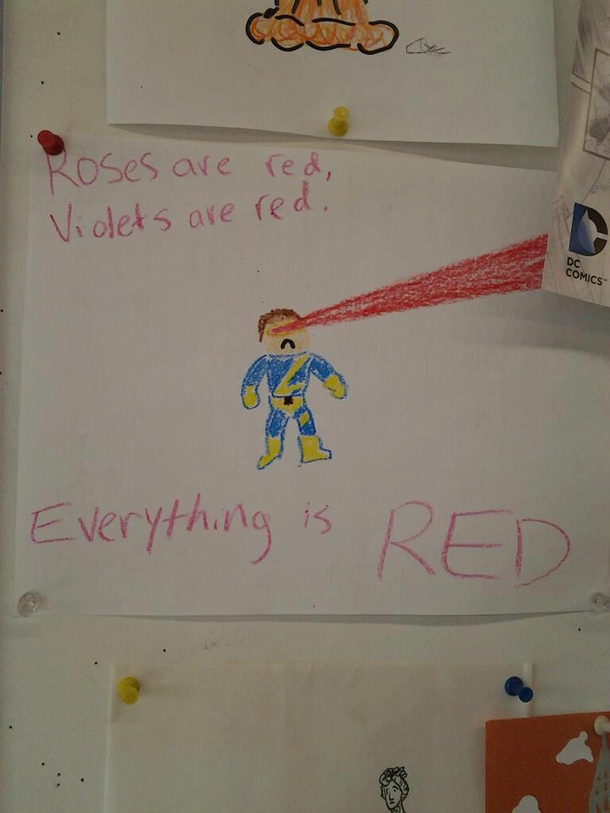 Roses are red,
Violets are red.
DC
COMICS™
Everything is RED